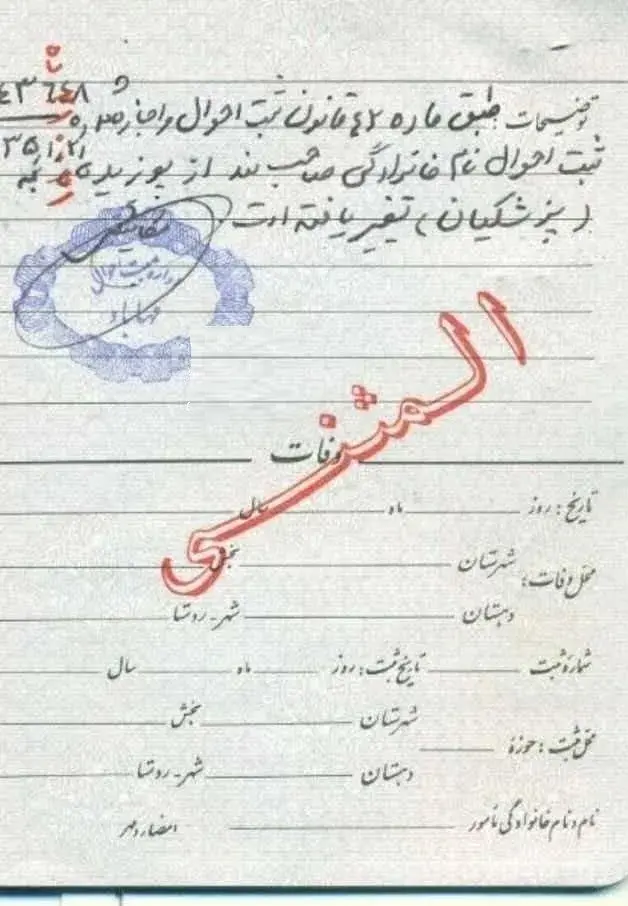 توضیحات: طبق ماده ۴۲ قانون ثبت احوال و اجازه ۴۳۶۴۸
ثبت احوال نام خانوادگی صاحب سند از به
(پزشکیان) تغییر یافته است.
اداره ثبت احوال
مهاباد
المثنی
وفات
تاریخ: روز ماه سال
محل وفات: شهرستان بخش
دهستان شهر-روستا
شماره ثبت تاریخ ثبت: روز ماه سال
محل ثبت: حوزه شهرستان بخش
دهستان شهر-روستا
نام و نام خانوادگی مأمور امضاء و مهر